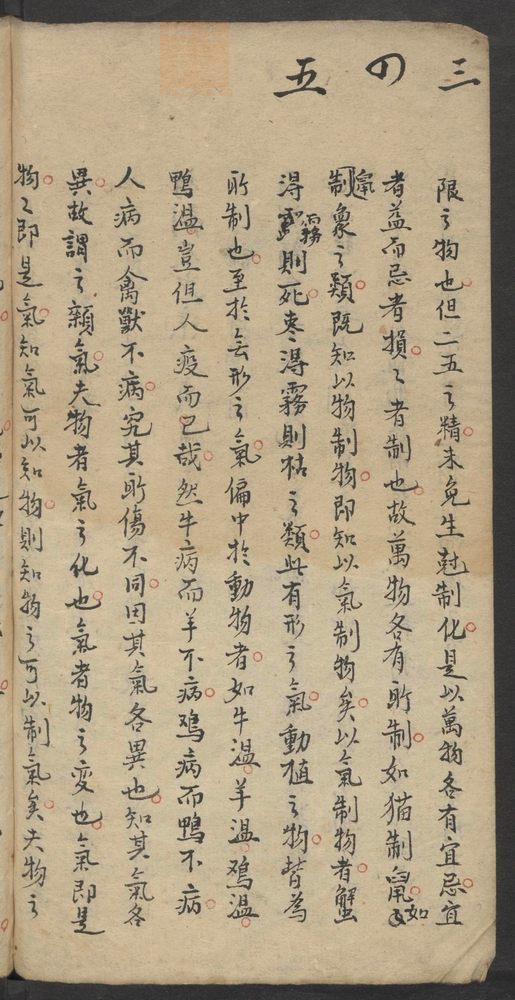 三の五
限之物也但二五之精未免生尅制化是以萬物各有宜忌宜
者益而忌者損〻者制也故萬物各有所制如猫制鼠如鼠
制象之類既知以物制物即知以氣制物矣以氣制物者蟹
得霧則死棗得霧則枯之類此有形之氣動植之物皆為
所制也至於無形之氣偏中於動物者如牛溫羊溫鴉溫
鴨溫豈但人疫而已哉然牛病而羊不病鴉病而鴨不病
人病而禽獸不病究其所傷不同因其氣各異也知其氣各
異故謂之纇氣夫物者氣之化也氣者物之變也氣即是
物〻即是氣知氣可以知物則知物之可以制氣矣夫物之